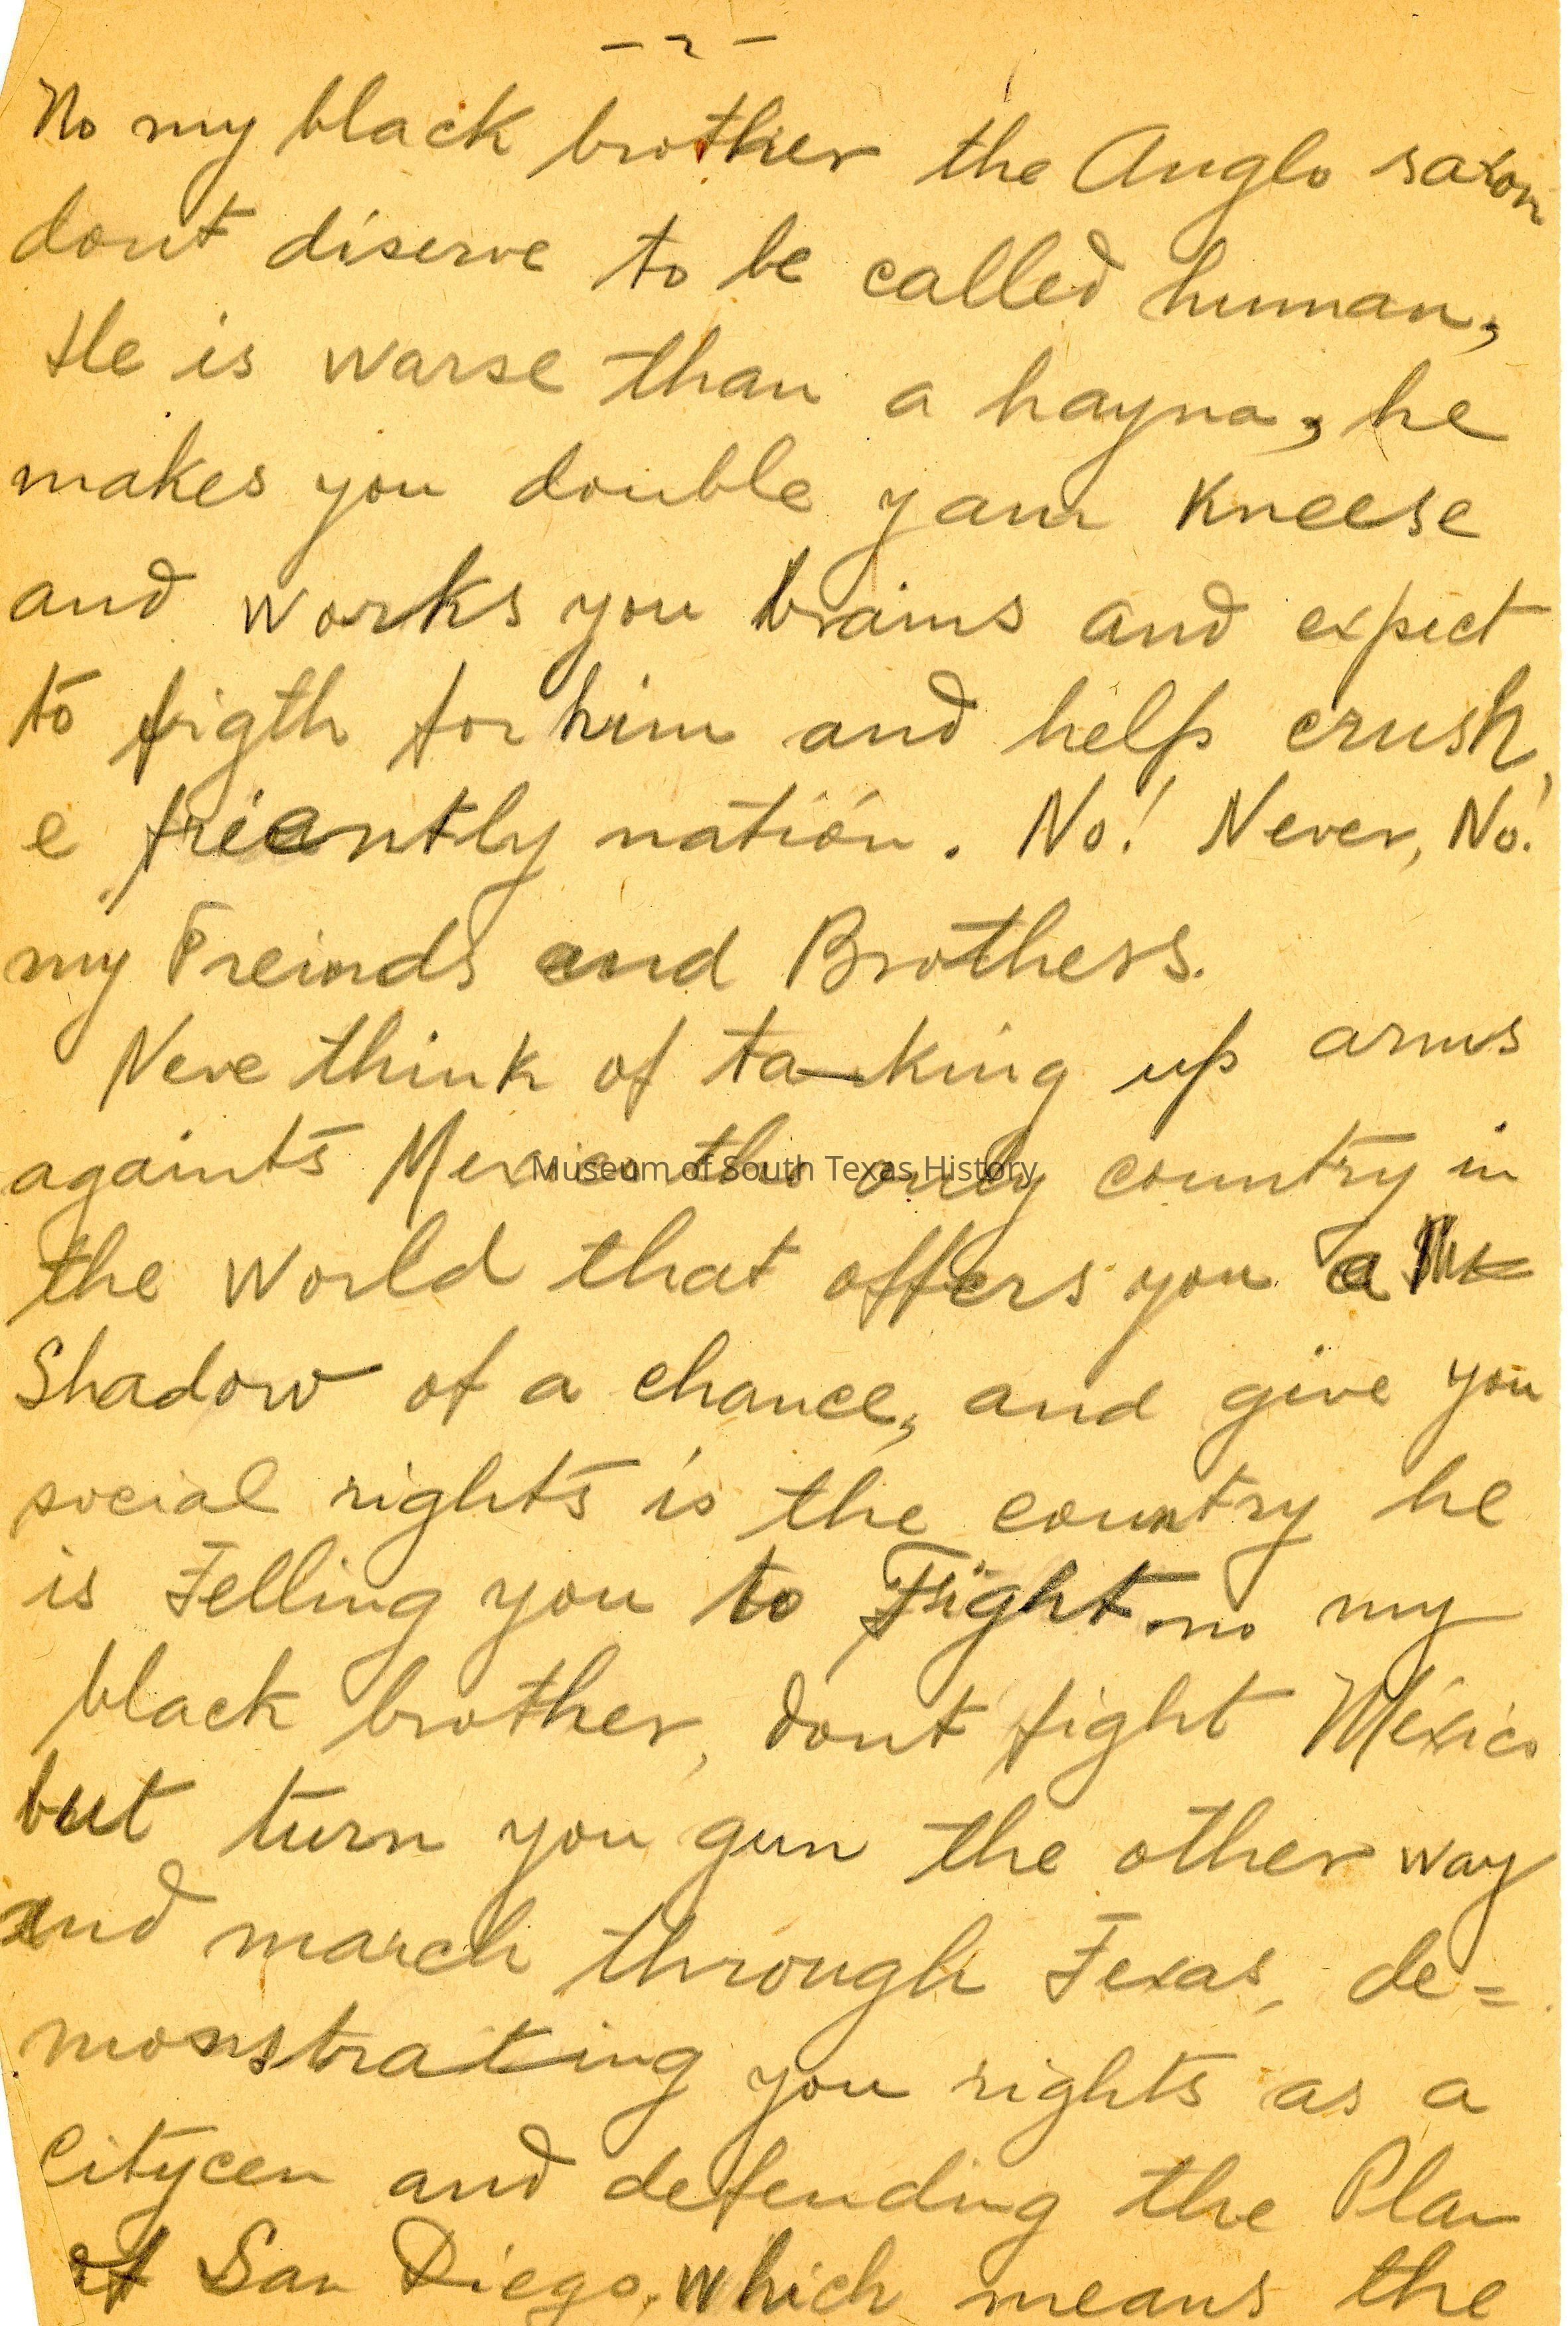 - 2 -
No my black brother the Anglo saxon
dont diserve to be called human,
He is warse than a hayna, he
makes you double yaur Kneese
and works you brains and expect
to figth for him and help crush,
e friently natión. No! Never, No!
my Freinds and Brothers.
Neve think of taking up arms
againts Mexico the only country in
Museum of South Texas History
the world that offers you a
Shadow of a chance, and give you
social rights is the country he
is Telling you to Fight. no my
black brother, dont fight México
but turn you gun the other way
and march through Texas, de=
monstrating you rights as a
Citycen and defending the Plan
of San Diego, which means the